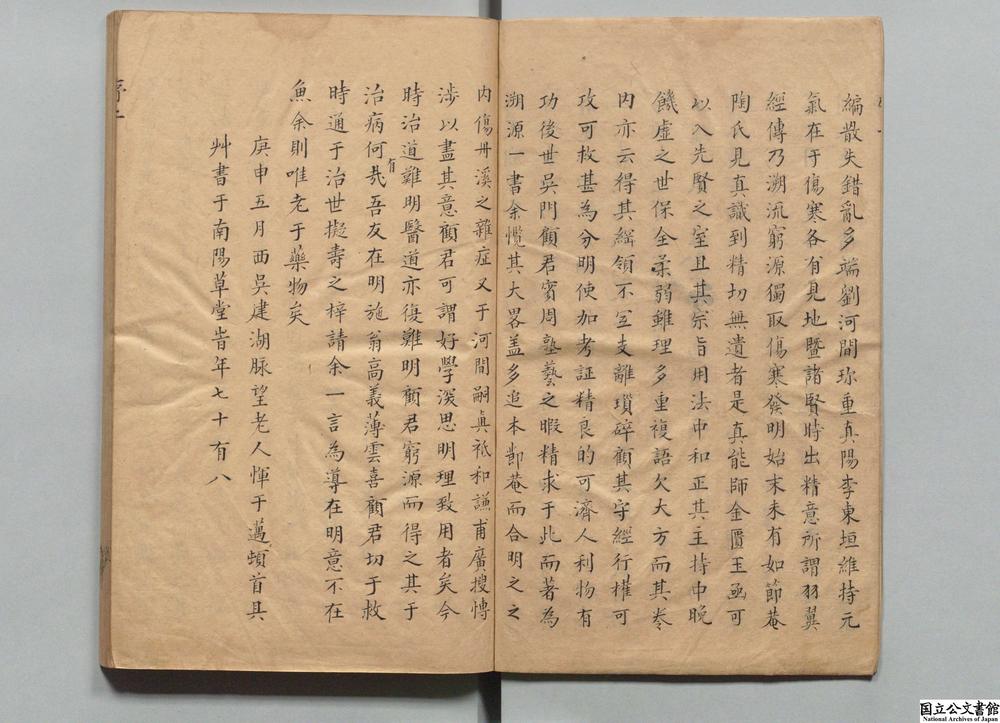 編散失錯亂多端劉河間珎重真陽李東垣維持元
氣在于傷寒各有見地曁諸賢時出精意所謂羽翼
經傳乃溯流窮源獨取傷寒發明始末未有如節菴
陶氏見真識到精切無遺者是真能師金匱王函可
以入先賢之室且其宗旨用法中和正其主持中晚
饑虛之世保全羸弱雖理多重複語欠大方而其奉
内亦云得其綱領不至支離瑣碎顧其守經行權可
攻可救甚為分明使加考証精良的可濟人利物有
功後世吳門顧君賓周塾藝之暇精求于此而著為
溯源一書余慌其大畧盖多追本鄴菴而合明之之
内傷丹溪之雜症又于河間嗣真祗和謙甫廣搜慱
渉以盡其意顧君可謂好學深思明理致用者矣今
時治道難明醫道亦復難明顧君窮源而得之其于
治病何有㢤吾友在明施翁高義薄雲喜顧君切于救
時通于治世擬壽之梓請余一言為導在明意不在
魚余則唯老于藥物矣
庚申五月西吳建湖脉望老人惲于邁頓首具
艸書于南陽草堂旹年七十有八
国立公文書館
National Archives of Japan